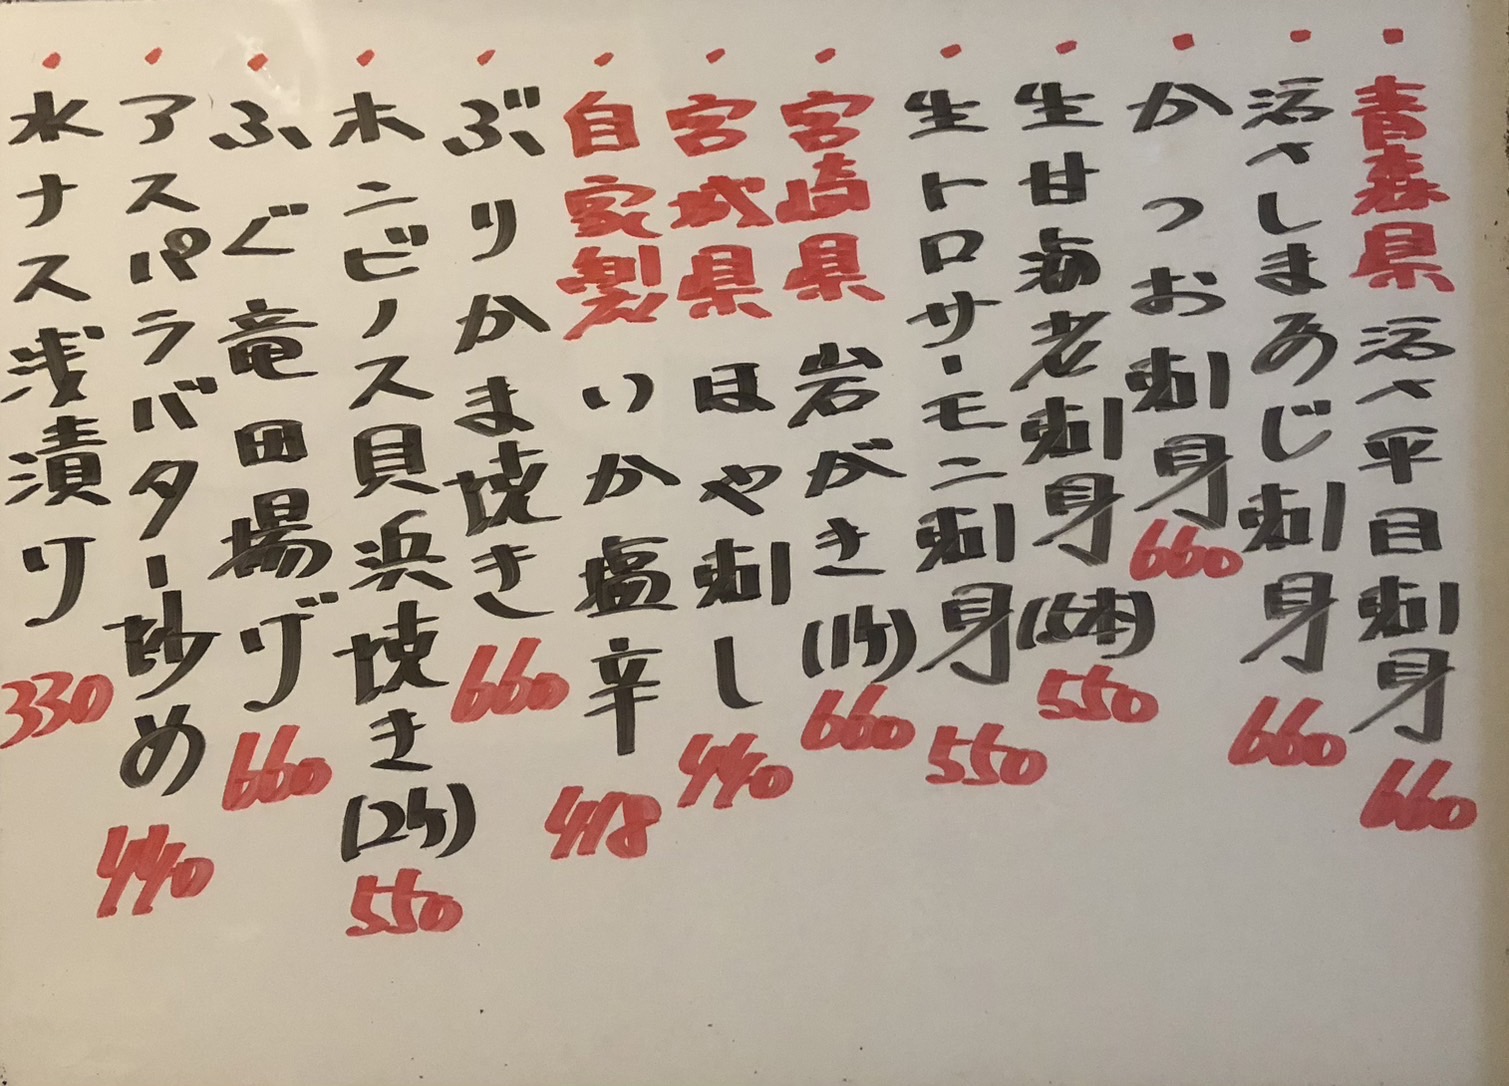 ・青森県 活〆平目刺身 660
・活〆しまあじ刺身 660
・かつお刺身 660
・生甘海老刺身(5本) 550
・生トロサーモン刺身 550
・宮崎県 岩がき(1ケ) 660
・宮城県 ほや刺し 440
・自家製 いか塩辛 418
・ぶりかま焼き 660
・ホンビノス貝浜焼き(2ケ) 550
・ふぐ竜田揚げ 660
・アスパラバター炒め 440
・水ナス浅漬け 330